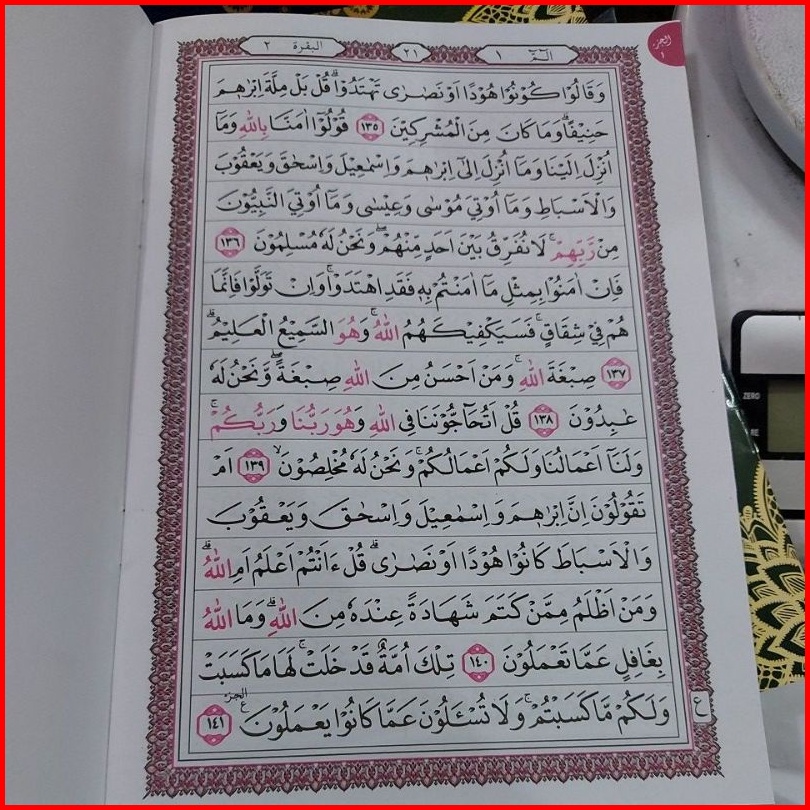 الجزء ١
الٓمّٓ ١
٢١
البقرة ٢
وَقَالُوْا كُوْنُوْا هُوْدًا اَوْ نَصٰرٰى تَهْتَدُوْا ۗ قُلْ بَلْ مِلَّةَ اِبْرٰهٖمَ
حَنِيْفًا ۗ وَمَا كَانَ مِنَ الْمُشْرِكِيْنَ ١٣٥ قُوْلُوْٓا اٰمَنَّا بِاللّٰهِ وَمَآ
اُنْزِلَ اِلَيْنَا وَمَآ اُنْزِلَ اِلٰٓى اِبْرٰهٖمَ وَاِسْمٰعِيْلَ وَاِسْحٰقَ وَيَعْقُوْبَ
وَالْاَسْبَاطِ وَمَآ اُوْتِيَ مُوْسٰى وَعِيْسٰى وَمَآ اُوْتِيَ النَّبِيُّوْنَ
مِنْ رَّبِّهِمْ ۚ لَا نُفَرِّقُ بَيْنَ اَحَدٍ مِّنْهُمْ ۖ وَنَحْنُ لَهٗ مُسْلِمُوْنَ ١٣٦
فَاِنْ اٰمَنُوْا بِمِثْلِ مَآ اٰمَنْتُمْ بِهٖ فَقَدِ اهْتَدَوْا ۚ وَاِنْ تَوَلَّوْا فَاِنَّمَا
هُمْ فِيْ شِقَاقٍ ۚ فَسَيَكْفِيْكَهُمُ اللّٰهُ ۚ وَهُوَ السَّمِيْعُ الْعَلِيْمُ ۗ
١٣٧ صِبْغَةَ اللّٰهِ ۚ وَمَنْ اَحْسَنُ مِنَ اللّٰهِ صِبْغَةً ۖ وَّنَحْنُ لَهٗ
عٰبِدُوْنَ ١٣٨ قُلْ اَتُحَاۤجُّوْنَنَا فِى اللّٰهِ وَهُوَ رَبُّنَا وَرَبُّكُمْ ۚ
وَلَنَآ اَعْمَالُنَا وَلَكُمْ اَعْمَالُكُمْ ۚ وَنَحْنُ لَهٗ مُخْلِصُوْنَ ۙ ١٣٩ اَمْ
تَقُوْلُوْنَ اِنَّ اِبْرٰهٖمَ وَاِسْمٰعِيْلَ وَاِسْحٰقَ وَيَعْقُوْبَ
وَالْاَسْبَاطَ كَانُوْا هُوْدًا اَوْ نَصٰرٰى ۗ قُلْ ءَاَنْتُمْ اَعْلَمُ اَمِ اللّٰهُ ۗ
وَمَنْ اَظْلَمُ مِمَّنْ كَتَمَ شَهَادَةً عِنْدَهٗ مِنَ اللّٰهِ ۗ وَمَا اللّٰهُ
بِغَافِلٍ عَمَّا تَعْمَلُوْنَ ١٤٠ تِلْكَ اُمَّةٌ قَدْ خَلَتْ ۚ لَهَا مَا كَسَبَتْ
وَلَكُمْ مَّا كَسَبْتُمْ ۚ وَلَا تُسْـَٔلُوْنَ عَمَّا كَانُوْا يَعْمَلُوْنَ ١٤١
ع
ZERO